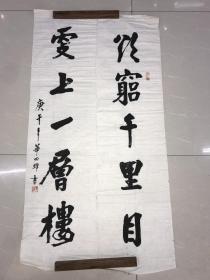 欲窮千里目
更上一層樓
庚午年
書